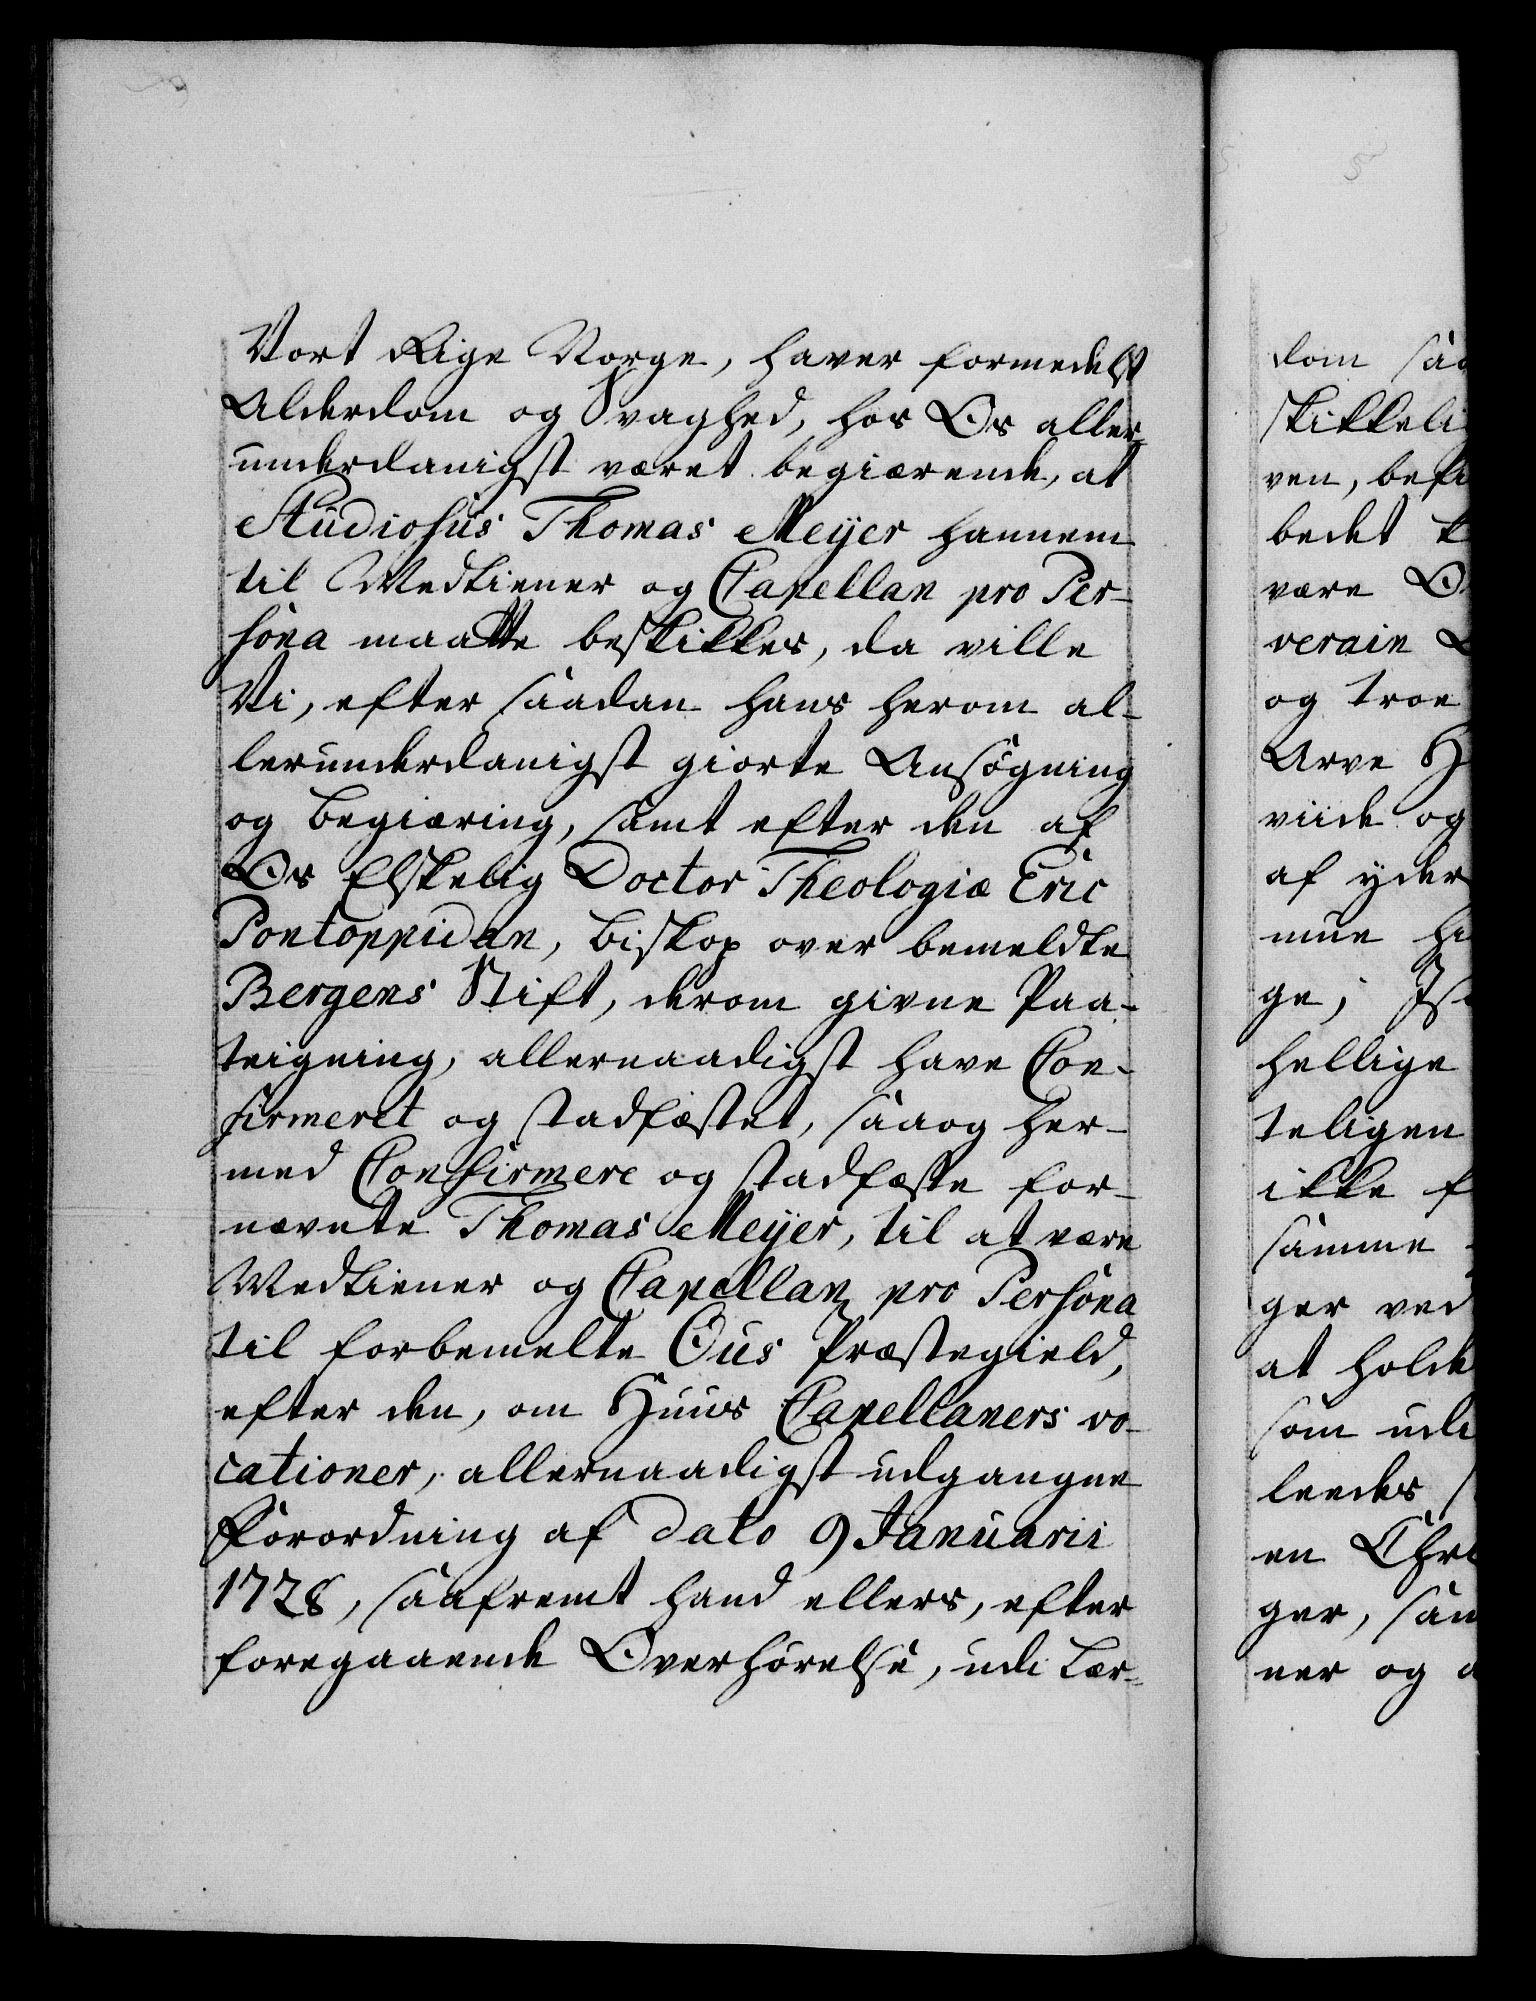 Vort Rige Norge, haver formedelst
Alderdom og Svaghed, hos Os aller-
underdanigst været begiærende, at
Studiosus Thomas Meÿer hannem
til Medtiener og Capellan pro Per-
sona maatte beskikkes, da ville
Vi, efter saadan hans herom al-
lerunderdanigst giorte Ansøgning
og Begiæring, samt efter den af
Os Elskelig Doctor Theologiæ Eric
Pontoppidan, Biskop over bemeldte
Bergens Stift, derom givne Paa-
teigning, allernaadigst have Con-
firmeret og stadfæstet, saaog her-
med Confirmere og stadfæste for-
nævnte Thomas Meÿer, til at være
Medtiener og Capellan pro Persona
til forbemelte Ous Præstegield,
efter den, om Huus Capellaners vo-
cationer, allernaadigst udgangne
Forordning af dato 9 Januarii
1728, saafremt hand ellers, efter
foregaaende Overhørelse, udi Lær-
dom saa
skikkeli
ven, befi
bedet
være
verain
og troe
Arve
viide og
af yder
mue
ge;
hellige
teligen
ikke
samme
ger ved
at holde
som ude
leedes
en Chri
ger, sam
ner og